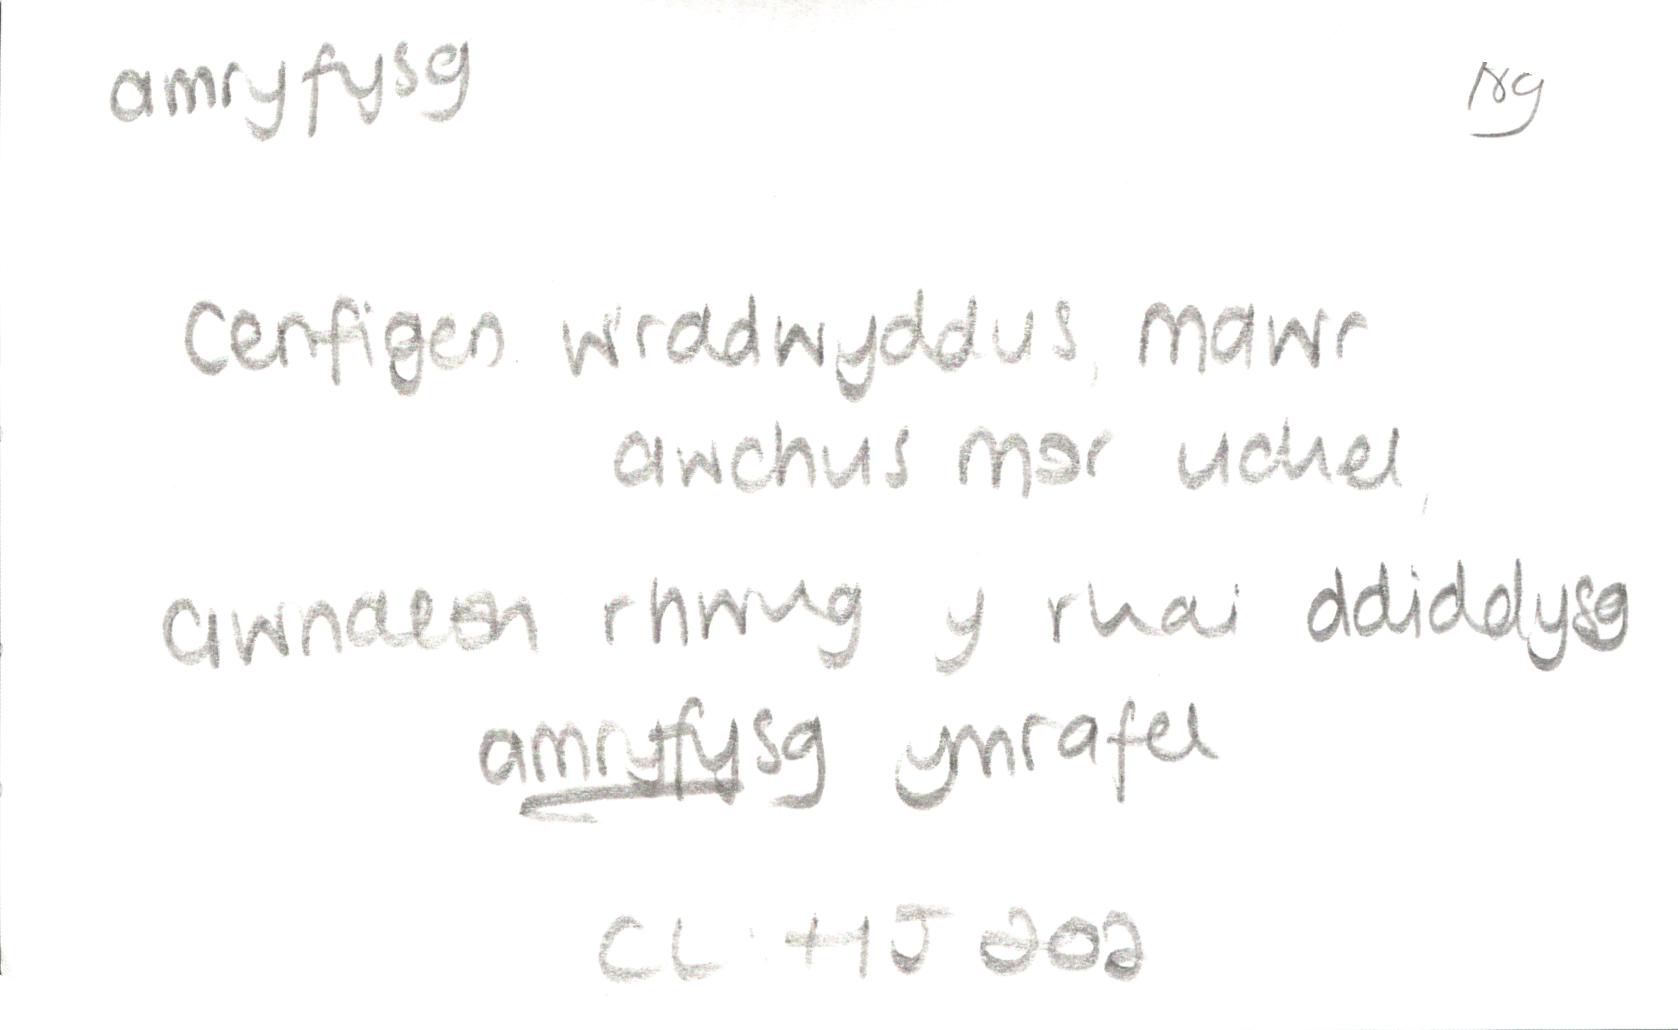 amryfysg
Cenfigen wraddwyddus, mawr
awchus mor uchel,
awnaeth rhwng y rhai ddiddysg
amryfysg ymrafel
CL: HJ 202